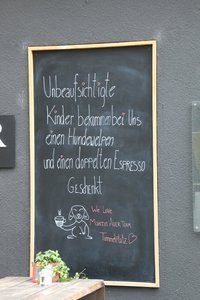 Unbeaufsichtigte
Kinder bekommen bei Uns
einen Hundewelpen
und einen doppelten Espresso
Geschenkt
We Love
Team
R